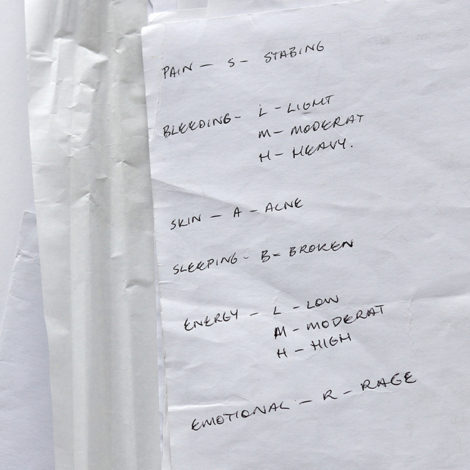 PAIN – S – STABING
BLEEDING – L – LIGHT
M – MODERAT
H – HEAVY.
SKIN – A – ACNE
SLEEPING – B – BROKEN
ENERGY – L – LOW
M – MODERAT
H – HIGH
EMOTIONAL – R – RAGE